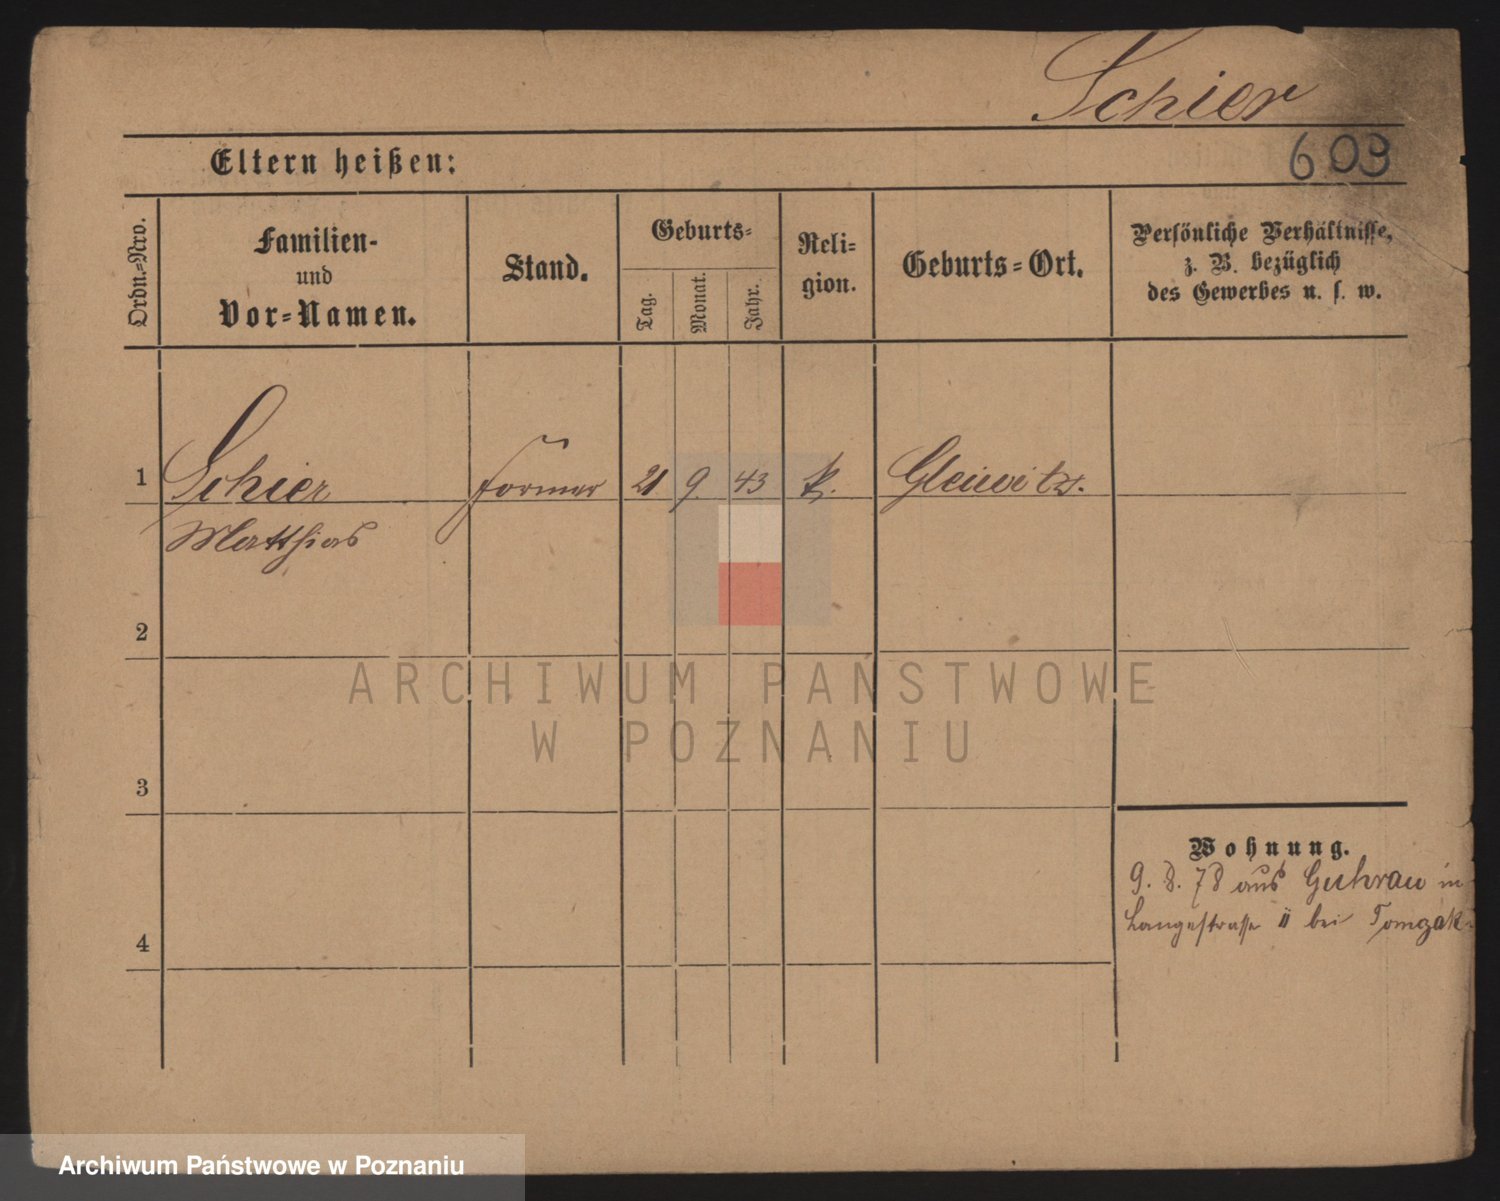 Schier
Eltern heißen:
609
Ordn.=Nro.
Familien-
und
Vor=Namen.
Stand.
Geburts=
Tag.
Monat.
Jahr.
Reli=
gion.
Geburts=Ort.
Persönliche Verhältnisse,
z. B. bezüglich
des Gewerbes u. s. w.
1 Schier Former 21 9 43 k. Gleiwitz.
Matthias
2
3
4
Wohnung.
9. 8. 78 aus Guhrau in
Langestrasse 11 bei Tomczak
ARCHIWUM PAŃSTWOWE
W POZNANIU
Archiwum Państwowe w Poznaniu